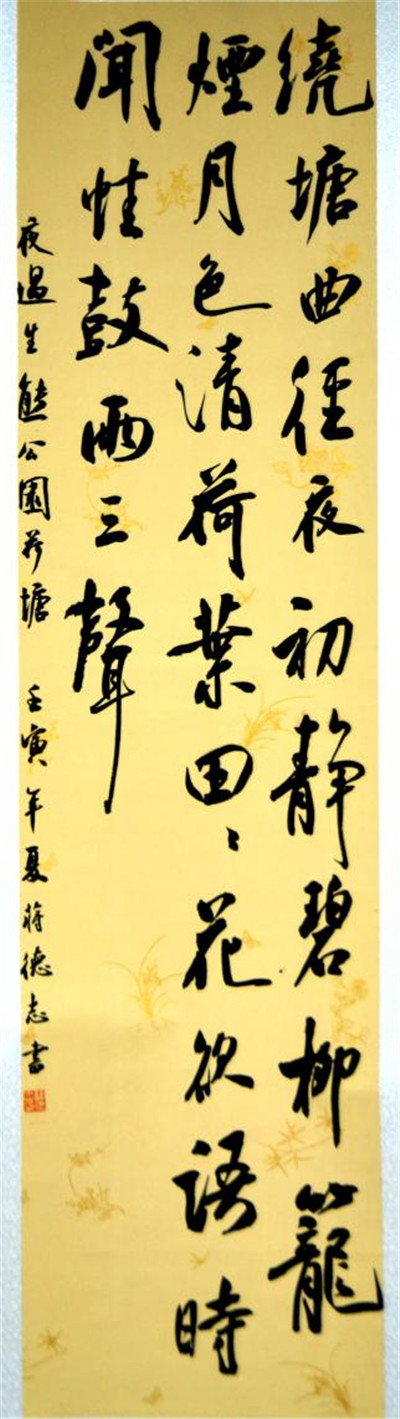 繞塘曲徑夜初靜碧柳籠
煙月色清荷葉田〻花欲語時
聞蛙鼓兩三聲
夜過生態公園荷塘 壬寅年夏蔣德志書